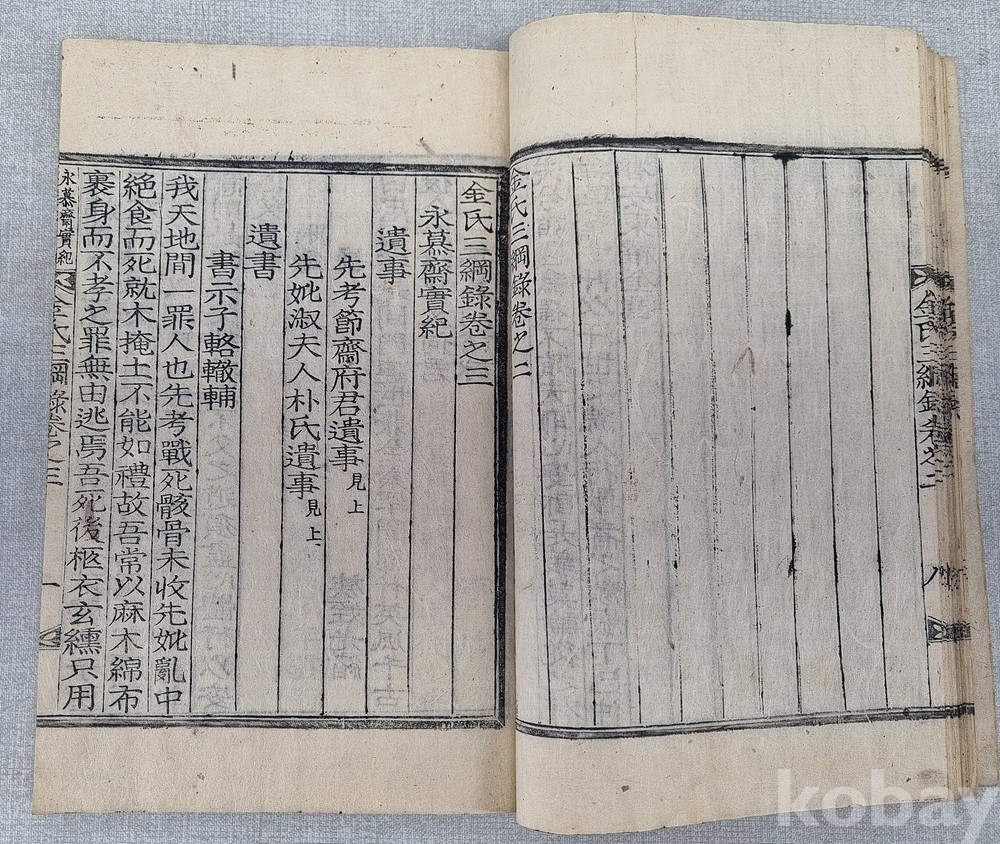 金氏三綱錄卷之二
八
金氏三綱錄卷之二
金氏三綱錄卷之三
永慕齋實紀
遺事
先考節齋府君遺事見上
先妣淑夫人朴氏遺事見上
遺書
書示子輅轍輔
我天地間一罪人也先考戰死骸骨未收先妣亂中
絶食而死就木掩土不能如禮故吾常以麻木綿布
裹身而不孝之罪無由逃焉吾死後柩衣玄纁只用
永慕齋實紀
金氏三綱錄卷之三
一
kobay